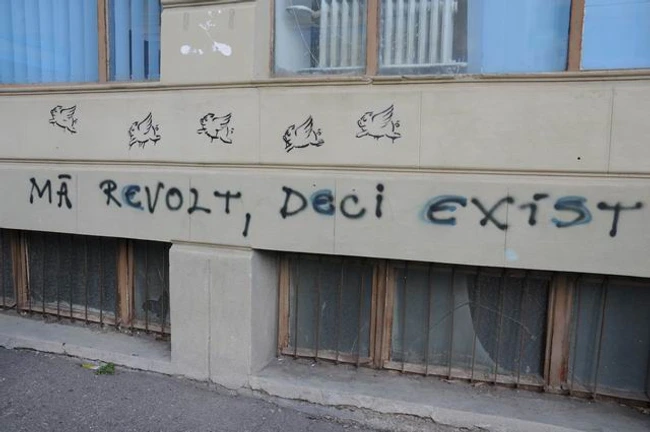 MĂ REVOLT, DECi EXiST